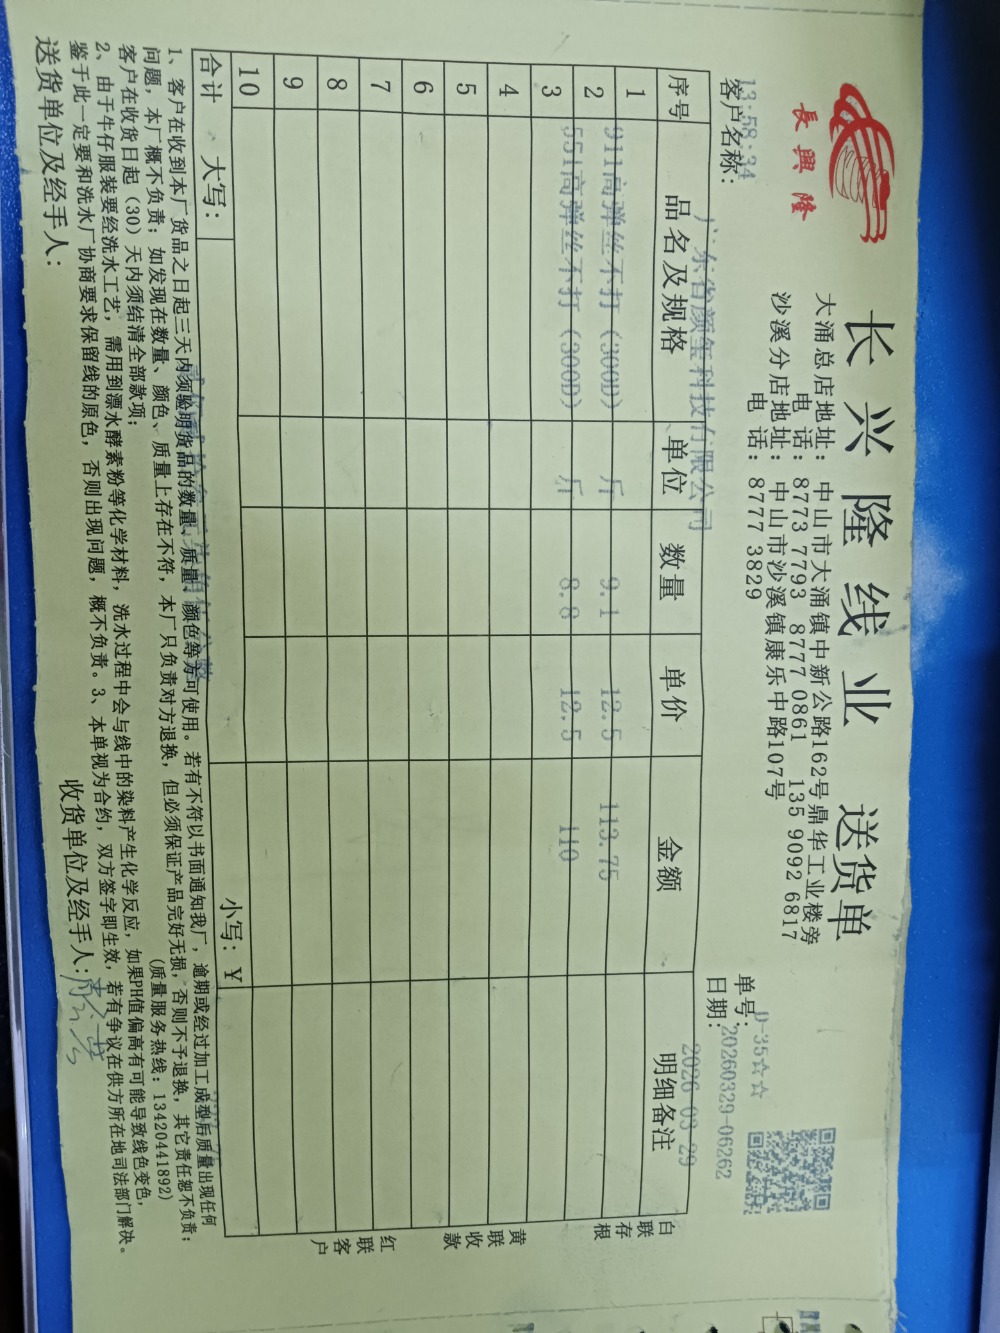 長興隆
长兴隆线业 送货单
大涌总店地址：中山市大涌镇中新公路162号鼎华工业楼旁
电 话：8773 7793 8777 0861 135 9092 6817
沙溪分店地址：中山市沙溪镇康乐中路107号
电 话：8777 3829
D-35☆☆
单号：20260329-06262
13:58:34
客户名称：广东省颜玺科技有限公司
日期：2026-03-29
序号 品名及规格 单位 数量 单价 金额 明细备注
1 911高弹丝不打（300D） 斤 9.1 12.5 113.75
2 551高弹丝不打（300D） 斤 8.8 12.5 110
3
4
5
6
7
8
9
10
合计 大写： 小写：￥
白联存根
黄联收款
红联客户
1、客户在收到本厂货品之日起三天内须验明货品的数量、质量、颜色等方可使用。若有不符以书面通知我厂，逾期或经过加工成型后质量出现任何
问题，本厂概不负责；如发现在数量、颜色、质量上存在不符，本厂只负责对方退换，但必须保证产品完好无损，否则不予退换，其它责任恕不负责；
客户在收货日起（30）天内须结清全部款项； （质量服务热线：13420441892）
2、由于牛仔服装要经洗水工艺，需用到漂水酵素粉等化学材料，洗水过程中会与线中的染料产生化学反应，如果PH值偏高有可能导致线色变色，
鉴于此一定要和洗水厂协商要求保留线的原色，否则出现问题，概不负责。3、本单视为合约，双方签字即生效，若有争议在供方所在地司法部门解决。
送货单位及经手人： 收货单位及经手人：